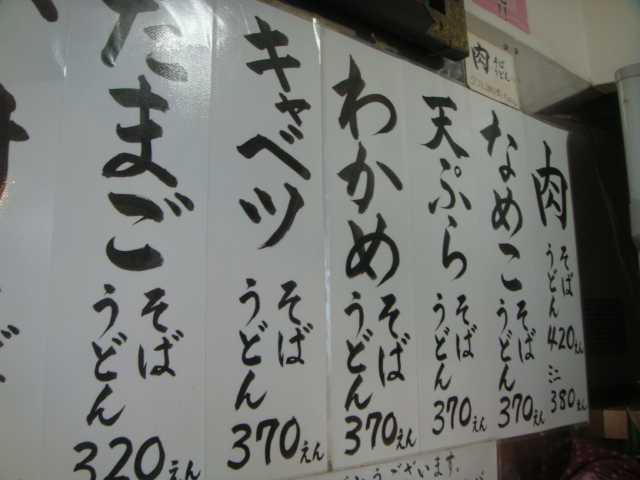 肉
そば
うどん
420えん
ミニ
380えん
なめこ
そば
うどん
370えん
天ぷら
そば
うどん
370えん
わかめ
そば
うどん
370えん
キャベツ
そば
うどん
370えん
たまご
そば
うどん
320えん
肉
そば
うどん
ございます。